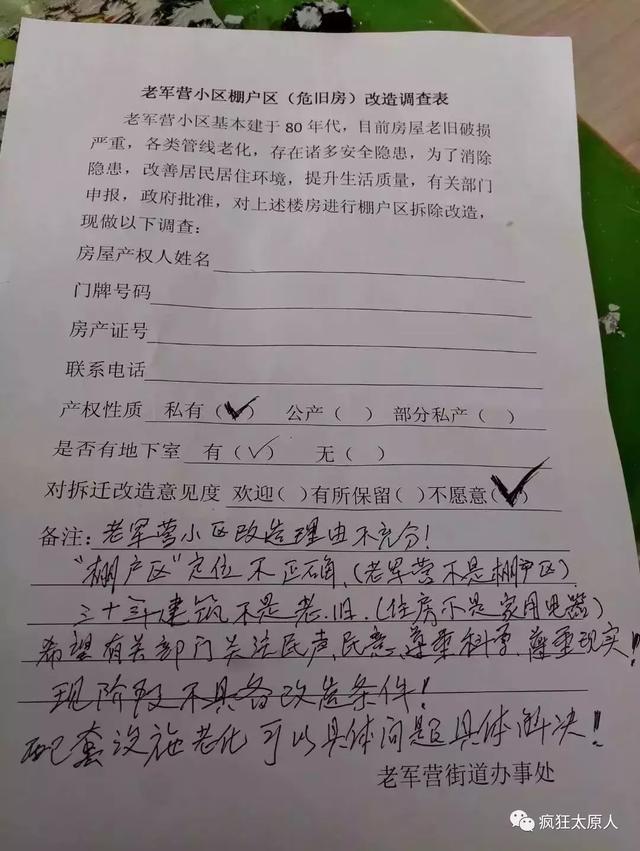 老军营小区棚户区（危旧房）改造调查表
老军营小区基本建于 80 年代，目前房屋老旧破损
严重，各类管线老化，存在诸多安全隐患，为了消除
隐患，改善居民居住环境，提升生活质量，有关部门
申报，政府批准，对上述楼房进行棚户区拆除改造，
现做以下调查：
房屋产权人姓名
门牌号码
房产证号
联系电话
产权性质 私有（✓） 公产（ ） 部分私产（ ）
是否有地下室 有（✓） 无（ ）
对拆迁改造意见度 欢迎（ ）有所保留（ ）不愿意（✓）
备注：老军营小区改造理由不充分！
“棚户区”定位不正确，（老军营不是棚户区）
三十年建筑不是老.旧.（住房不是家用电器）
希望有关部门关注民声、民意、尊重科学，尊重现实！
现阶段不具备改造条件！
配套设施老化可以具体问题具体解决！
老军营街道办事处
疯狂太原人